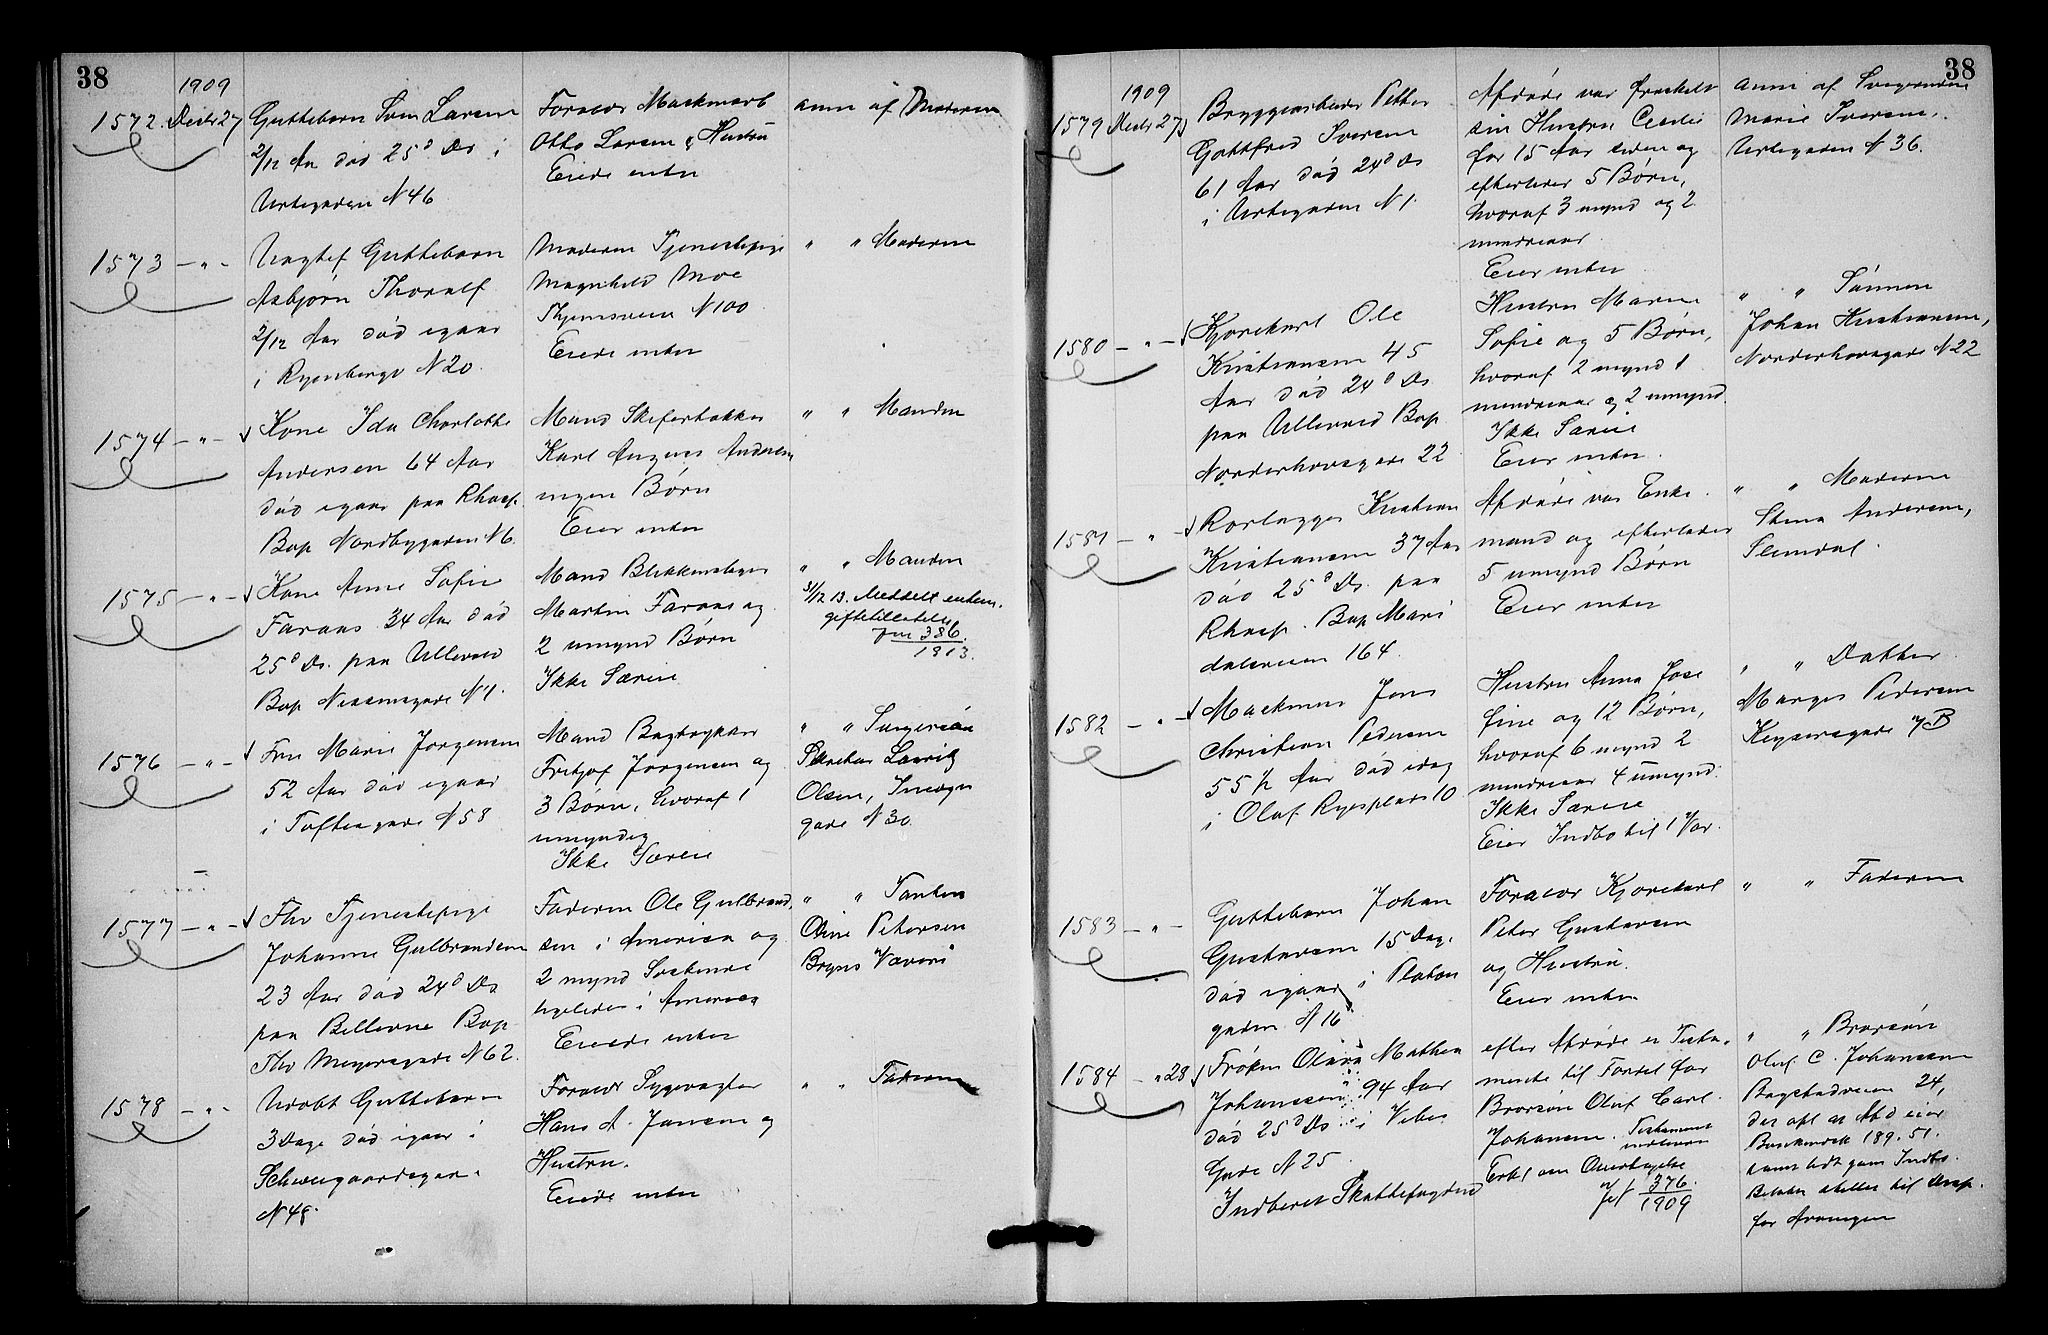 38
1909
1572. Decbr 27
Guttebarn Sven Larsen
2/12 Aar død 25d Ds i
Urtegaden N 46
Otto Larsen & Hustru
Eiede intet
anm af Moderen
1573 - " -
Guttebarn
Asbjørn Thoralf
2/12 Aar død igaar
i Ryenberget N 20.
Moderen Tjenestepige
Magnhild Moe
N 100
Eiede intet
" " Moderen
1574 - " -
Kone Ida Charlotte
Andersen 64 Aar
død igaar paa Rhosp.
Bop Nordbygaden N 6.
Mand
Karl August Andersen
ingen Børn
Eier intet
" " Manden
1575 - " -
Kone Anne Sofie
34 Aar død
25d Ds. paa Ullevaal
Bop
Mand Blikkenslager
Martin
2 umynd Børn
Ikke Særeie
" " Manden
31/12 13. Meddelt
giftetilladelse
Jnr 386.
1913.
1576 - " -
Fru Marie Jørgensen
52 Aar død igaar
i Toftesgade N 58
Mand
Fritjof Jørgensen og
3 Børn, hvoraf 1
umyndig
Ikke Særeie
" " Svigersøn
Lauritz
Olsen,
gade N 30.
1577 - " -
Fhv Tjenestepige
Johanne Gulbrandsen
23 Aar død 24d Ds
paa Bellevue Bop
Thv Meyersgade N 62.
Faderen Ole Gulbrand-
sen i America og
2 mynd Søstre
i America
Eiede intet
" " Tanten
Oline Petersen
Bryns Væveri
1578 - " -
Udøbt Guttebarn
3 Dage død igaar i
Schweigaardsgade
N 48.
Foræld Sygevogter
Hans A. Jansen og
Hustru.
Eiede intet
" " Faderen
38
1909
1579 Decbr 27
Bryggearbeider Petter
Gottfred Iversen
61 Aar død 24d Ds
i Urtegaden N 1.
Afdøde var fraskilt
sin Hustru Cecilie
for 15 Aar siden og
efterlader 5 Børn,
hvoraf 3 mynd og 2
mindreaar.
Eier intet
anm af Svigerinden
Marie Iversen,
Urtegaden N 36.
1580 - " -
Kjørekarl Ole
Kristiansen 45
Aar død 24d Ds
paa Ullevaal Bop
Norderhovsgade 22
Hustru Maren
Sofie og 5 Børn,
hvoraf 2 mynd 1
mindreaar og 2 umynd.
Ikke Særeie
Eier intet.
" " Sønnen
Johan Kristiansen,
Norderhovsgade N 22
1581 - " -
Rørlægger Kristian
Kristiansen 37 Aar
død 25d Ds. paa
Rhosp. Bop Mari
dalsveien 164.
Afdøde var Enke
mand og efterlader
5 umynd Børn
Eier intet
" " Moderen
Stina Andersen,
Slemdal.
1582 - " -
Maskinist Jens
Christian Pedersen
55 1/2 Aar død idag
i Olaf Ryesplads 10
Hustru Anna Jose
fine og 12 Børn,
hvoraf 6 mynd 2
mindreaar 4 umynd.
Ikke Særeie
Eier Indbo til
" " Datter
Margit Pedersen
Keysersgade 7 B
1583 - " -
Guttebarn Johan
Gustavsen 15 Dage
død igaar i Platou
gaden N 16
Foræld Kjørekarl
Peter Gustavsen
og Hustru.
Eier intet
" " Faderen
1584 - " 28
Frøken Olava Mathea
Johannesen 94 Aar
død 25d Ds i Vibes
Gade N 25.
Indberet Skattefogden
efter Afdøde er Testa-
mente til Fordel for
Brorsøn Oluf Carl
Johansen. Testament
Jnr 376.
1909
" " Brorsøn
Oluf C. Johansen
Bogstadveien 24,
der opl at Afd eier
189.51.
samt lidt gam Indbo.
for Arvingen